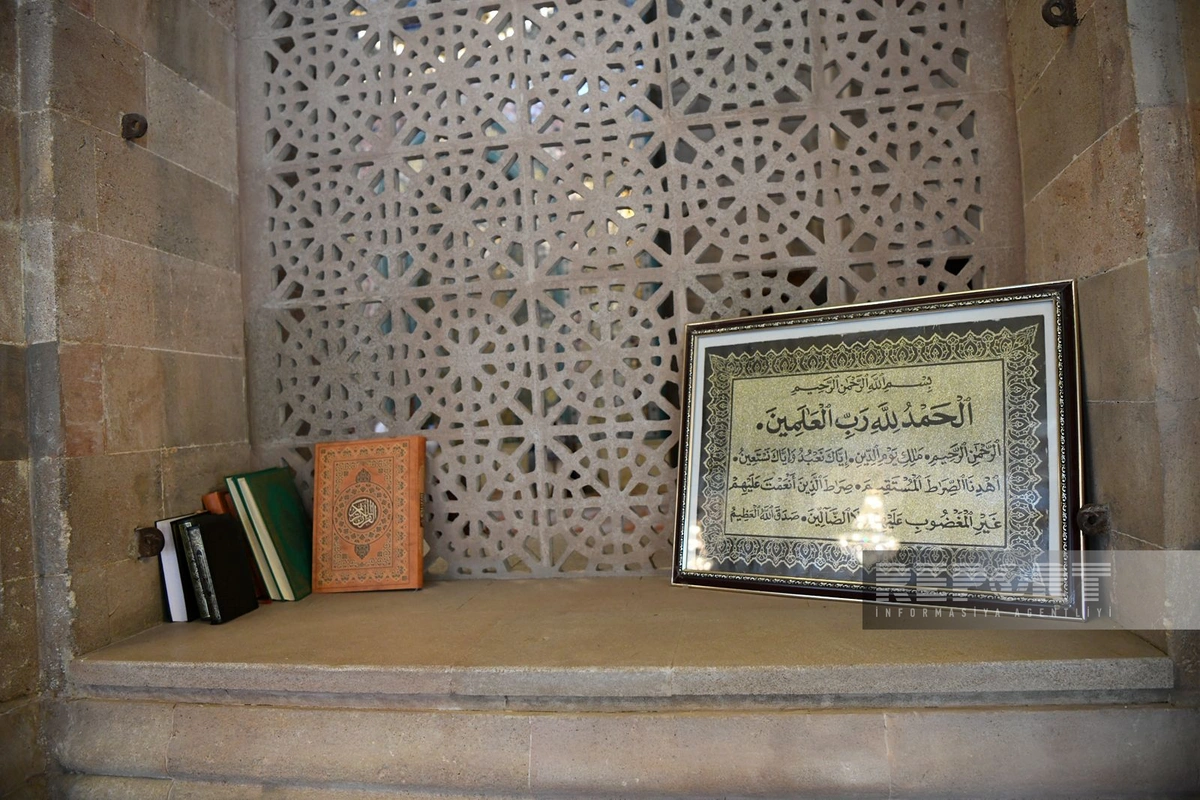 بِسْمِ اللَّهِ الرَّحْمَٰنِ الرَّحِيمِ
ٱلْحَمْدُ لِلَّهِ رَبِّ ٱلْعَالَمِينَ •
ٱلرَّحْمَٰنِ ٱلرَّحِيمِ • مَلِكِ يَوْمِ الدِّينِ • إِيَّاكَ نَعْبُدُ وَإِيَّاكَ نَسْتَعِينُ •
ٱهْدِنَا ٱلصِّرَٰطَ ٱلْمُسْتَقِيمَ • صِرَٰطَ ٱلَّذِينَ أَنْعَمْتَ عَلَيْهِمْ
غَيْرِ ٱلْمَغْضُوبِ الضَّالِّينَ • صَدَقَ اللَّهُ الْعَظِيمُ
القرآن الكريم
REPORT
İNFORMASİYA AGENTLİYİ